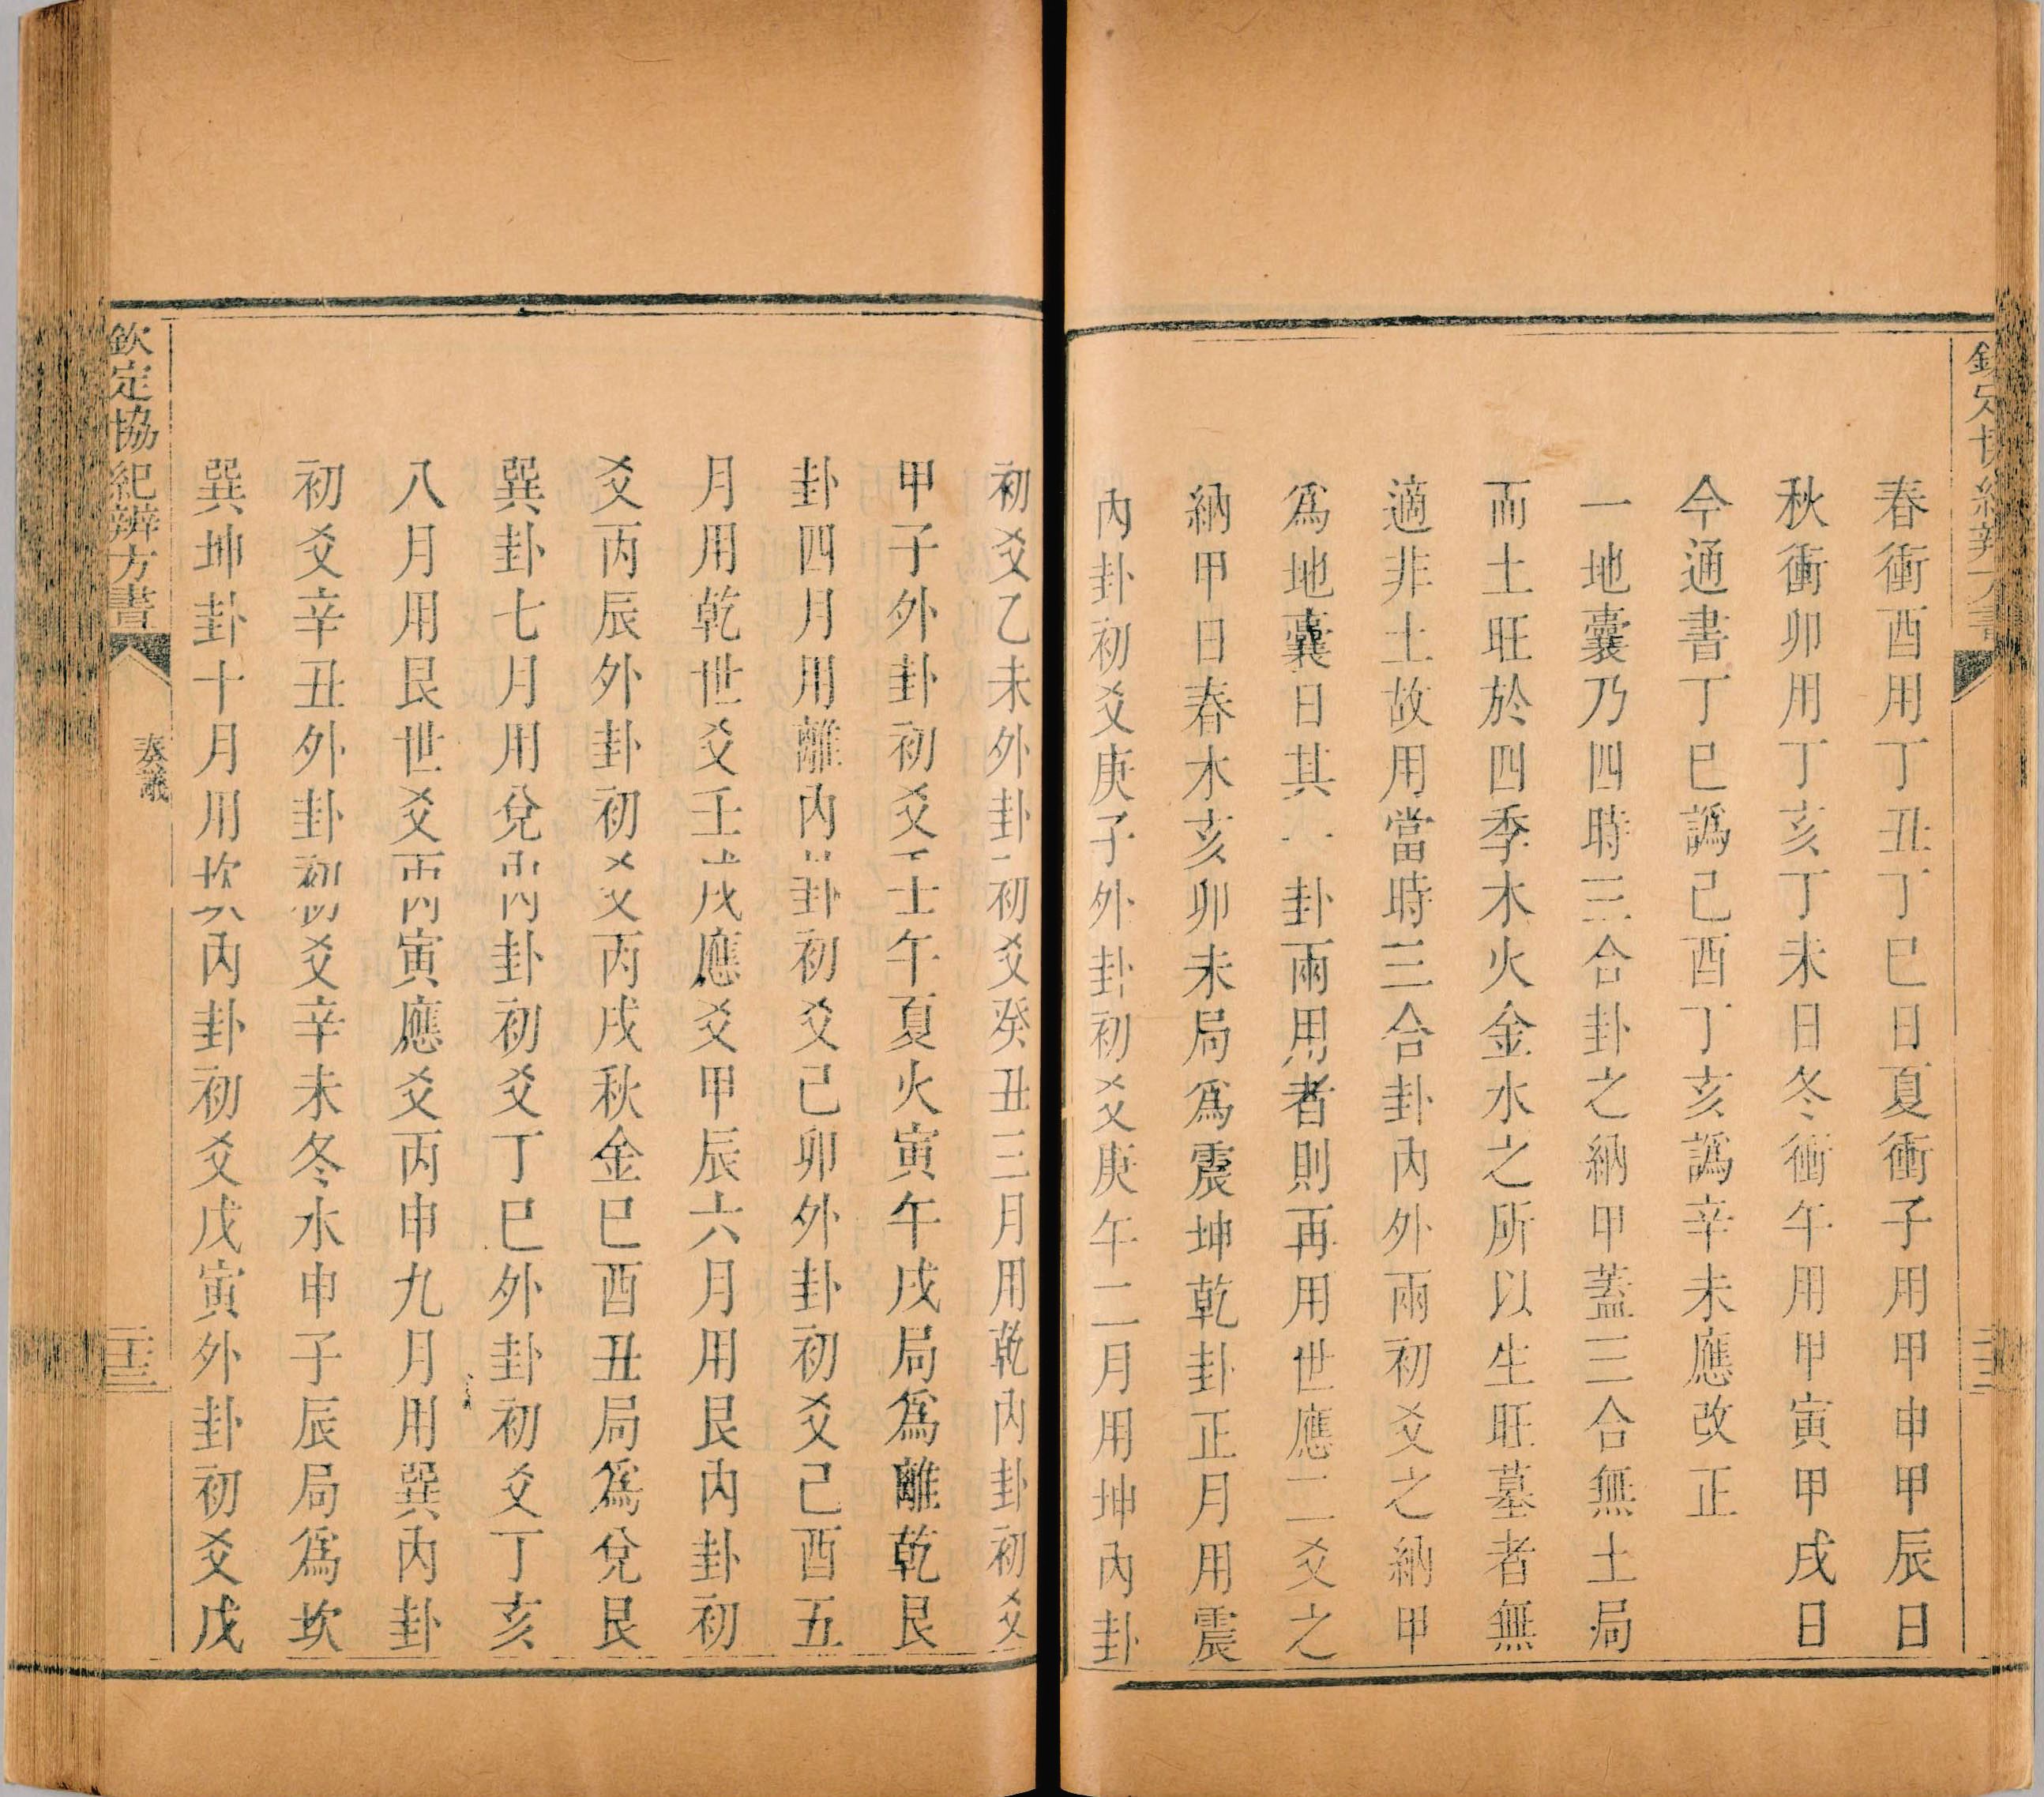 春衝酉用丁丑丁巳日夏衝子用甲申甲辰日
秋衝卯用丁亥丁未日冬衝午用甲寅甲戌日
今通書丁巳譌己酉丁亥譌辛未應改正
一地囊乃四時三合卦之納甲蓋三合無土局
而土旺於四季木火金水之所以生旺墓者無
適非土故用當時三合卦内外兩初爻之納甲
爲地囊日其一卦兩用者則再用世應二爻之
納甲日春木亥卯未局爲震坤乾卦正月用震
内卦初爻庚子外卦初爻庚午二月用坤内卦
初爻乙未外卦初爻癸丑三月用乾内卦初爻
甲子外卦初爻壬午夏火寅午戌局爲離乾艮
卦四月用離内卦初爻己卯外卦初爻己酉五
月用乾世爻壬戌應爻甲辰六月用艮内卦初
爻丙辰外卦初爻丙戌秋金巳酉丑局爲兌艮
巽卦七月用兌内卦初爻丁巳外卦初爻丁亥
八月用艮世爻丙寅應爻丙申九月用巽内卦
初爻辛丑外卦初爻辛未冬水申子辰局爲坎
巽坤卦十月用坎内卦初爻戊寅外卦初爻戊
欽定協紀辨方書
奏議
二十三